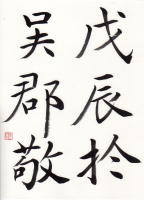 戊辰於
吴郡敬